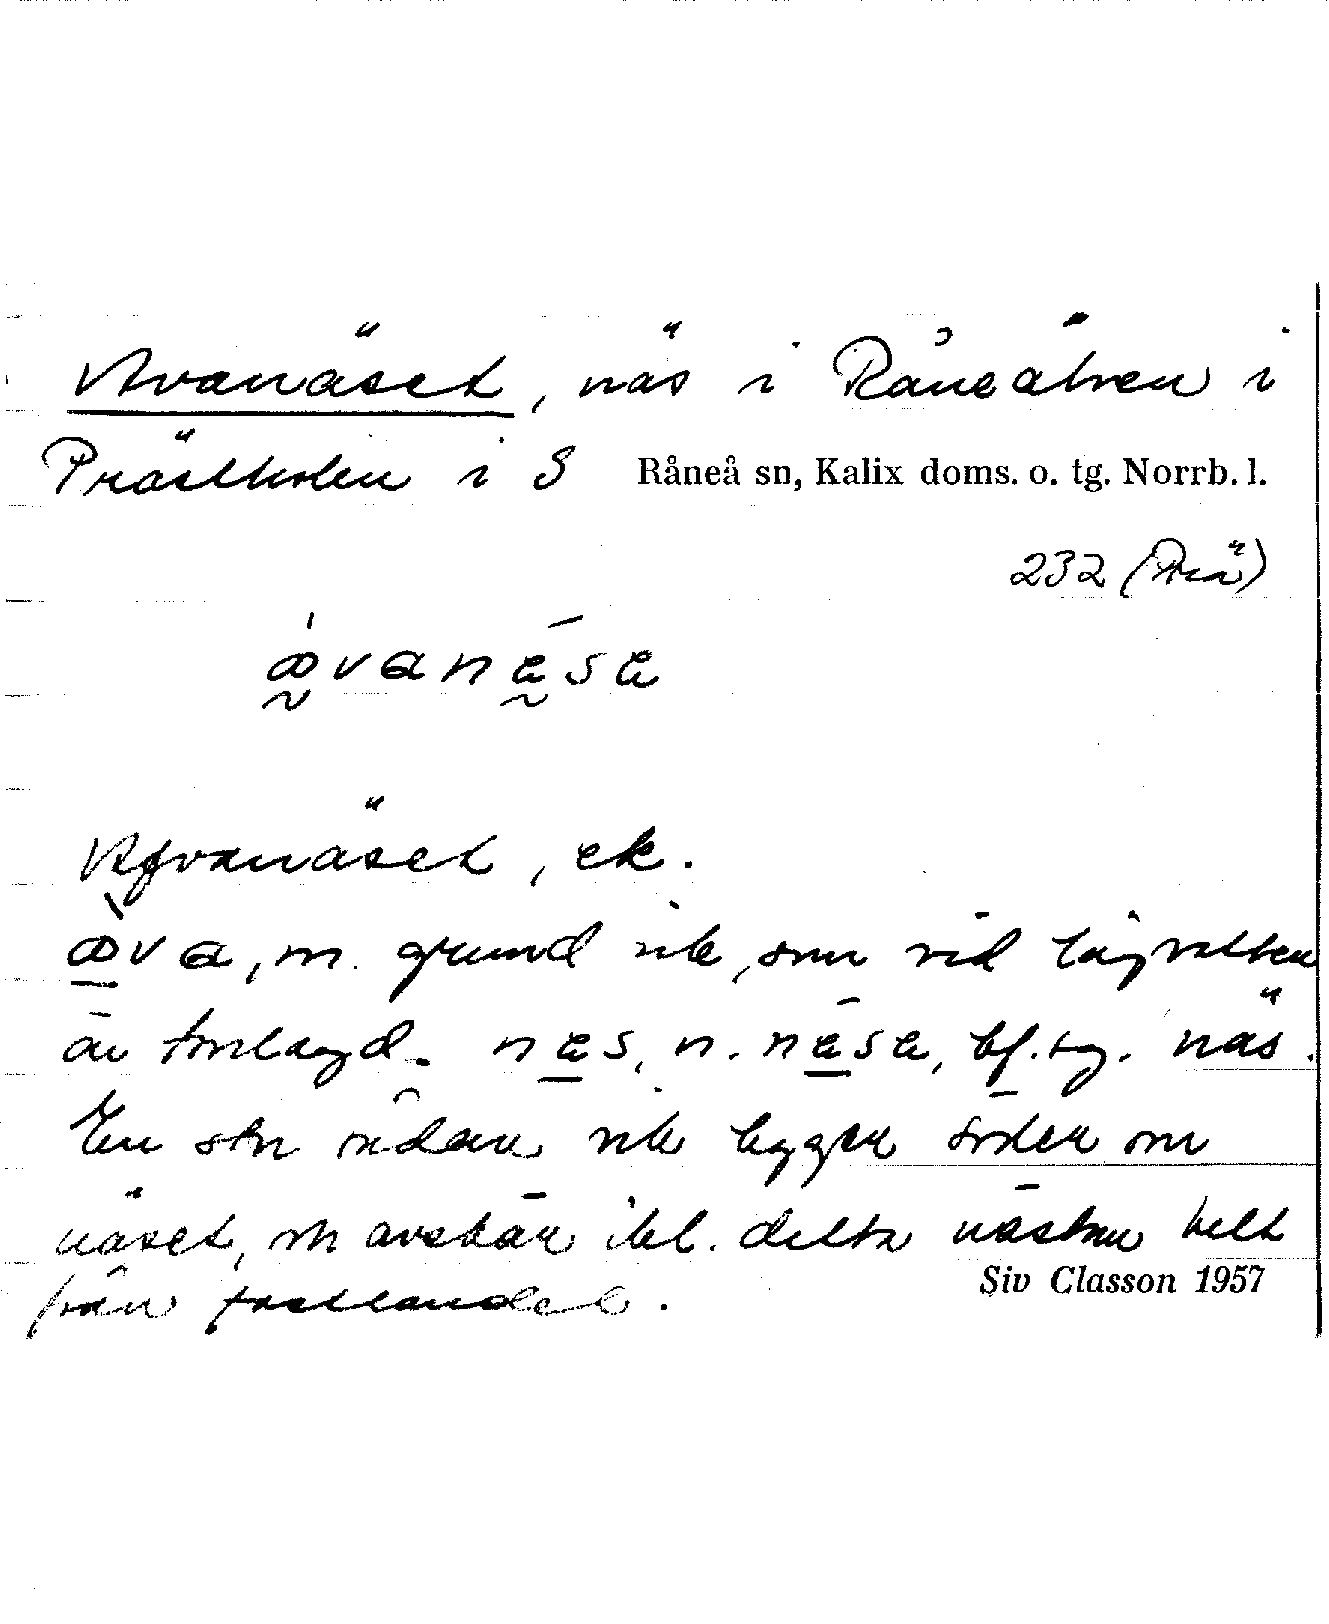 Avanäset, näs i Råneälven i
Prästholm i S Råneå sn, Kalix doms. o. tg. Norrb. l.
232 (Prä)
a̰vanǣ̰sæ
Afvanäset, ek.
àva, m. grund vik, som vid lågvatten
är torrlagd. næs, n. nǣsæ, bf. sg. näs.
En stor sådan vik ligger söder om
näset, och avskär ibl. detta nästan helt
från fastlandet.
Siv Classon 1957